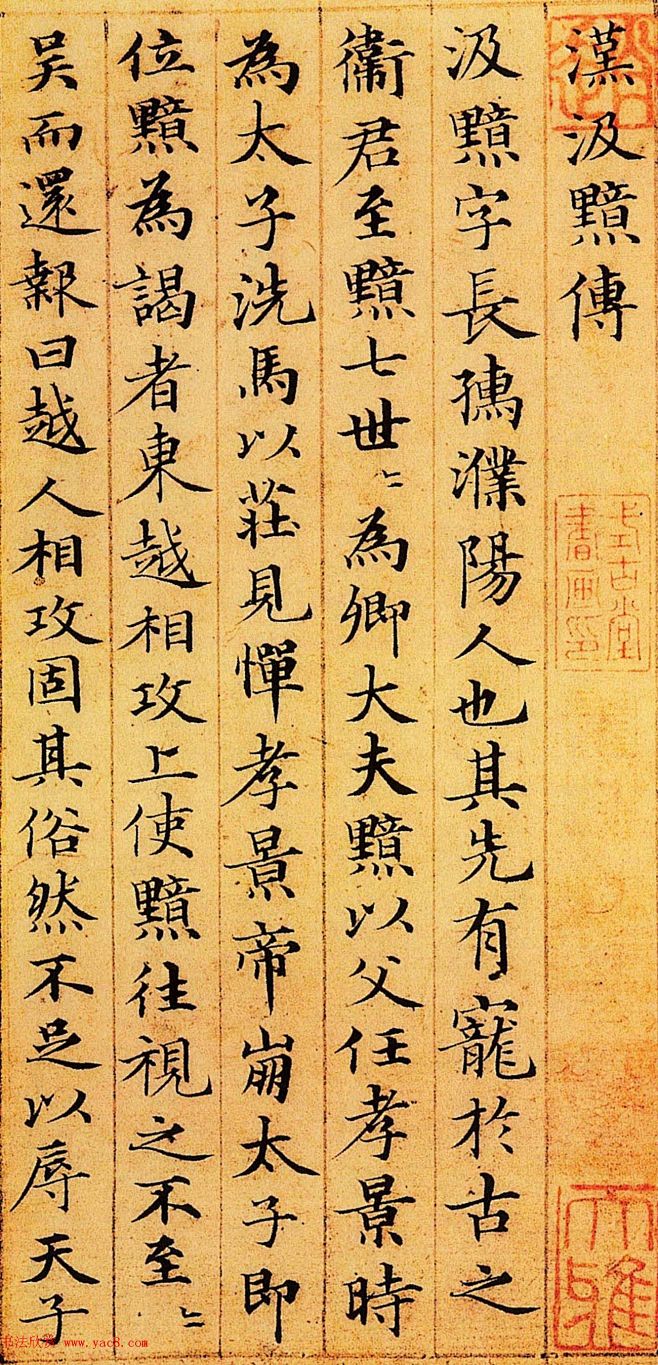 漢汲黯傳
汲黯字長孺濮陽人也其先有寵於古之
衞君至黯七世〻為卿大夫黯以父任孝景時
為太子洗馬以莊見憚孝景帝崩太子即
位黯為謁者東越相攻上使黯往視之不至〻
吳而還報曰越人相攻固其俗然不足以辱天子
大雅
书法欣赏 www.yac8.com